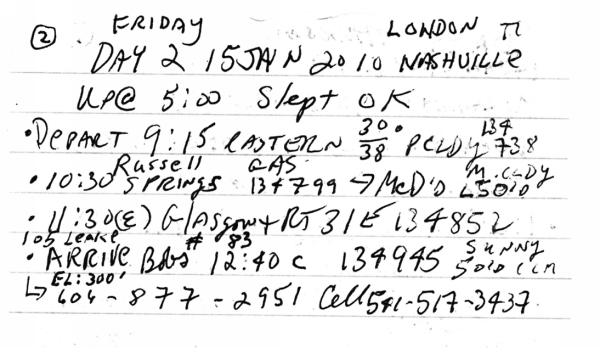 ② FRIDAY LONDON TI
DAY 2 15 JAN 2010 NASHVILLE
UP@ 5:00 Slept OK
• DEPART 9:15 EASTERN 30°/38 P.CLDY 134738
• 10:30 Russell SPRINGS GAS 134799 → McD'S M.CLDY
• 11:30(E) Glasgow + RT 31E 134852
• ARRIVE Bobs 105 LEAKE # 83 12:40 C 134945 SUNNY 50°
EL: 300'
↳ 604-877-2951 Cell 541-517-3437